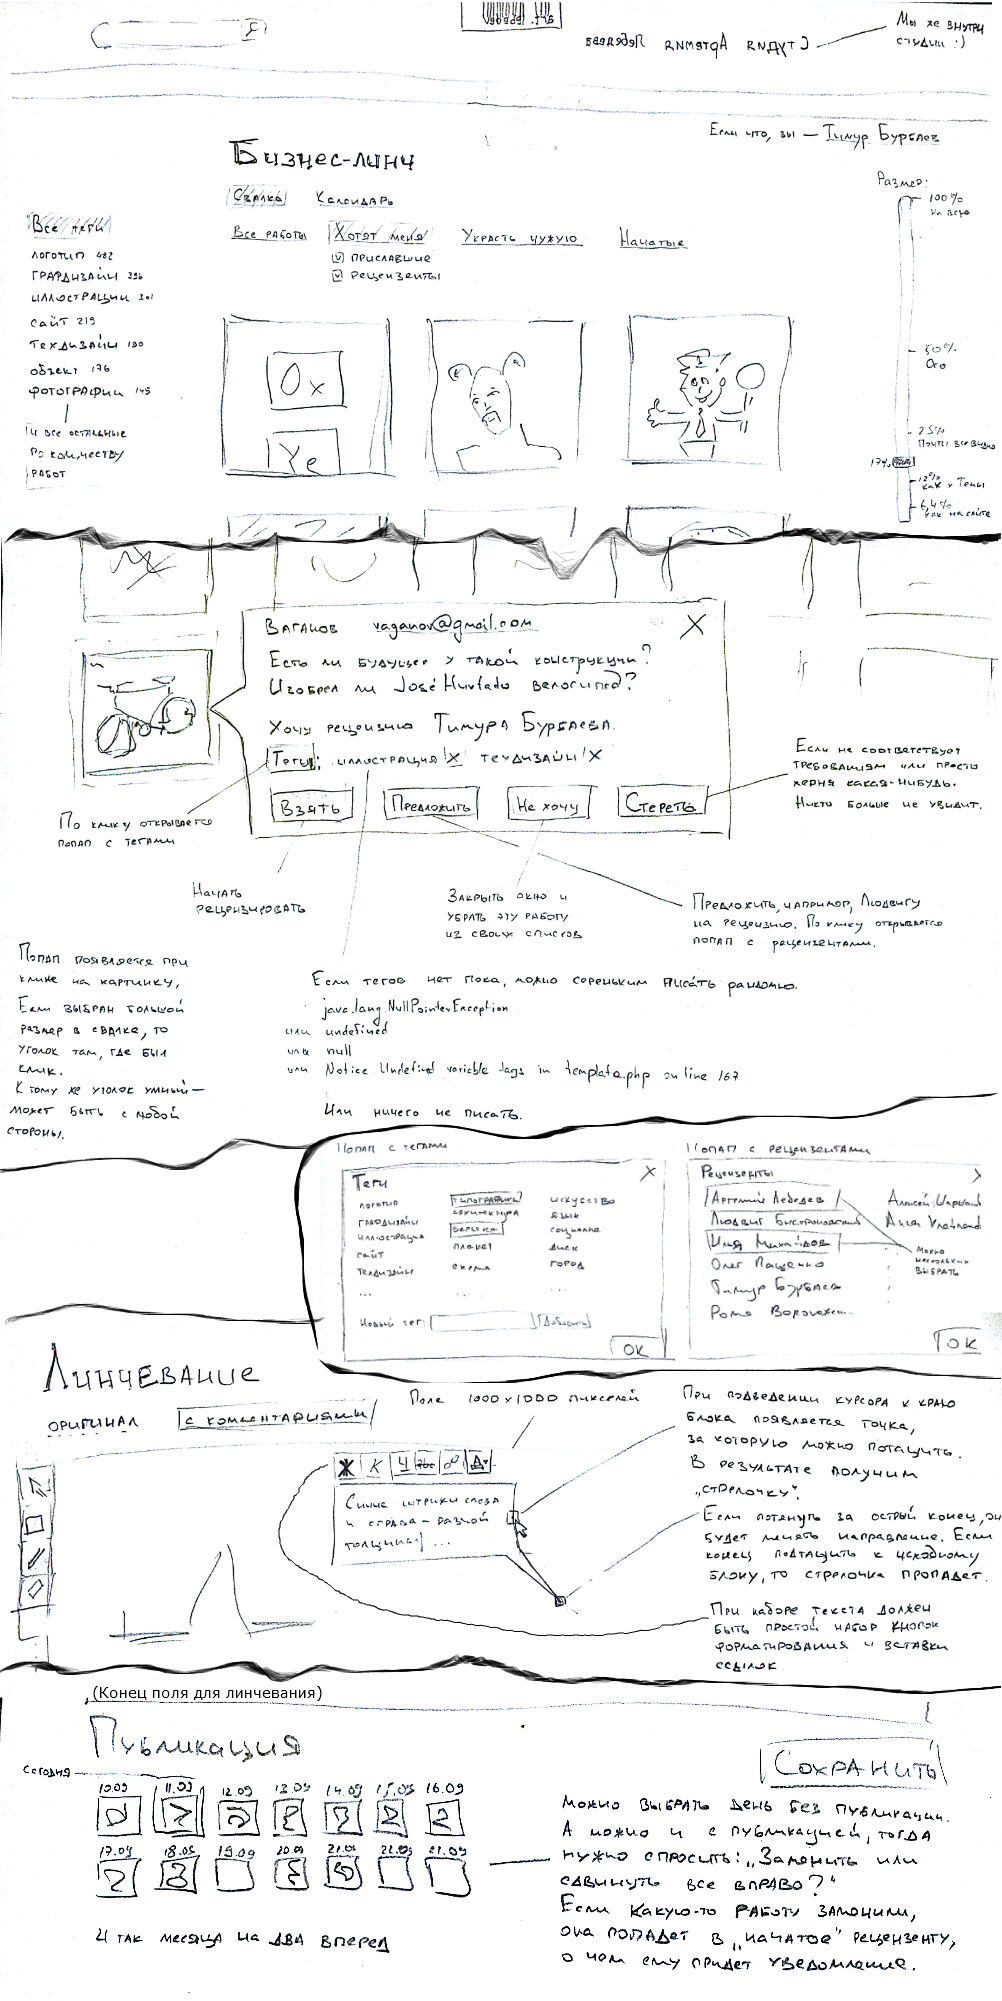 Я
Студия Артемия Лебедева
Мы же внутри
студии :)
Если что, вы — Тимур Бурбаев
Бизнес-линч
Свалка Календарь
Все работы Хотят меня Украсть чужую Начатые
приславшие
рецензенты
Все теги
логотип 482
графдизайн 396
иллюстрации 301
сайт 219
техдизайн 190
объект 176
фотографии 145
и все остальные
по количеству
работ
Размер:
100%
на всю
50%
Ого
25%
Почти все видно
17%
12%
как у Темы
6,4%
как на сайте
Ox
Ye
Ваганов vaganov@gmail.com X
Есть ли будущее у такой конструкции?
Изобрел ли José Hurtado велосипед?
Хочу рецензию Тимура Бурбаева.
Теги: иллюстрация X техдизайн X
Взять Предложить Не хочу Стереть
Если не соответствует
требованиям или просто
херня какая-нибудь.
Никто больше не увидит.
По клику открывается
попап с тегами
Начать
рецензировать
Закрыть окно и
убрать эту работу
из своих списков
Предложить, например, Людвигу
на рецензию. По клику открывается
попап с рецензентами.
Попап появляется при
клике на картинку,
Если выбран большой
размер в свалке, то
уголок там, где был
клик.
К тому же уголок умный —
может быть с любой
стороны.
Если тегов нет пока, можно сереньким писать рандомно.
java.lang.NullPointerException
или undefined
или null
или Notice Undefined variable tags in template.php on line 167
Или ничего не писать.
Попап с тегами
Теги X
логотип типографика искусство
графдизайн архитектура язык
иллюстрация верстка социалка
сайт плакат диск
техдизайн схема город
... ... ...
Новый тег: Добавить
OK
Попап с рецензентами
Рецензенты
Артемий Лебедев
Людвиг Быстроновский
Илья Михайлов
Олег Пащенко
Тимур Бурбаев
Рома Воронежский
Можно
нескольких
выбрать
OK
Линчевание
оригинал с комментариями
Поле 1000 x 1000 пикселей
Ж К Ч abc A
Синие штрихи слева
и справа — разной
толщины ...
При подведении курсора к краю
блока появляется точка,
за которую можно потащить.
В результате получим
„стрелочку".
Если потянуть за острый конец, он
будет менять направление. Если
конец подтащить к исходному
блоку, то стрелочка пропадет.
При наборе текста должен
быть простой набор кнопок
форматирования и вставки
ссылок
(Конец поля для линчевания)
Публикация
Сохранить
Сегодня
10.09 11.09 12.09 13.09 14.09 15.09 16.09
17.09 18.09 19.09 20.09 21.09 22.09 21.09
И так месяца на два вперед
Можно выбрать день без публикации.
А можно и с публикацией, тогда
нужно спросить: „Заменить или
сдвинуть все вправо?"
Если какую-то работу заменили,
она попадет в „начатое" рецензенту,
о чем ему придет уведомление.